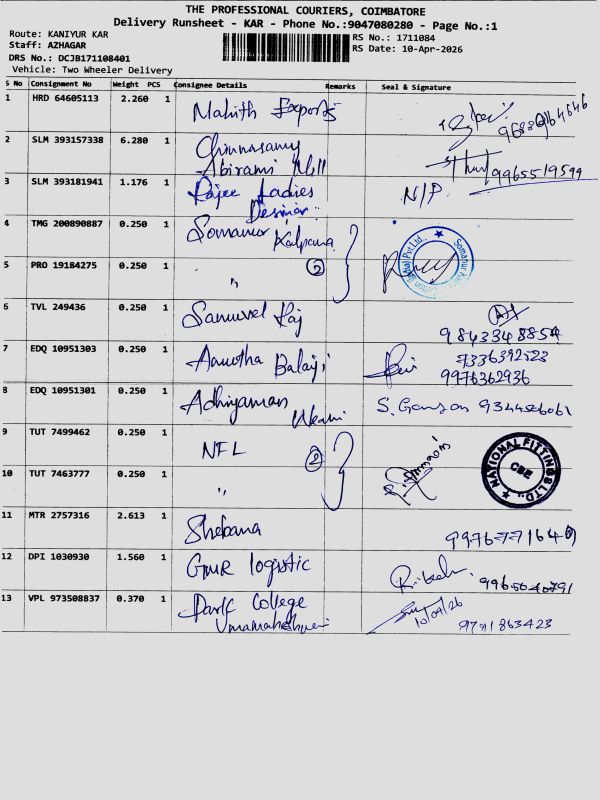 THE PROFESSIONAL COURIERS, COIMBATORE
Delivery Runsheet - KAR - Phone No.:9047080280 - Page No.:1
Route: KANIYUR KAR
Staff: AZHAGAR
RS No.: 1711084
RS Date: 10-Apr-2026
DRS No.: DCJB171108401
Vehicle: Two Wheeler Delivery
S No Consignment No Weight PCS Consignee Details Remarks Seal & Signature
1 HRD 64605113 2.260 1 Mahith Exports
2 SLM 393157338 6.280 1 Chinnasamy
Abirami Mill 9965519599
3 SLM 393181941 1.176 1 Rajee Ladies N/P
4 TMG 200890887 0.250 1 Somanur Kalpana
5 PRO 19184275 0.250 1 " 2
6 TVL 249436 0.250 1 Samuvel Raj
9843348854
7 EDQ 10951303 0.250 1 Balaji 7336392523
9976362936
8 EDQ 10951301 0.250 1 Adhiyaman
9 TUT 7499462 0.250 1 NFL 2
NATIONAL FITTINGS LTD.,
CBE
10 TUT 7463777 0.250 1 "
11 MTR 2757316 2.613 1 Shebana
12 DPI 1030930 1.560 1 GMR logistic
13 VPL 973508837 0.370 1 Park College 10/04/26
Umamaheshwari 9791863423